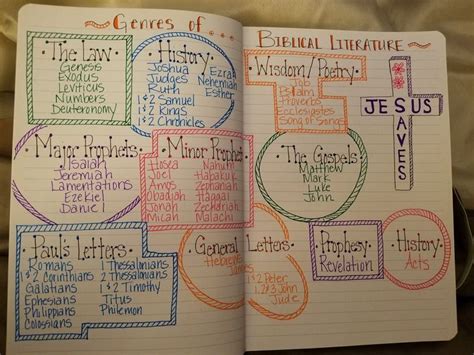 Genres of...
Biblical Literature
The Law
Genesis
Exodus
Leviticus
Numbers
Deuteronomy
History
Joshua
Judges
Ruth
1 & 2 Samuel
1 & 2 Kings
1 & 2 Chronicles
Ezra
Nehemiah
Esther
Wisdom/Poetry
Job
Psalm
Proverbs
Ecclesiastes
Song of Songs
JESUS
SAVES
Major Prophets
Isaiah
Jeremiah
Lamentations
Ezekiel
Daniel
Minor Prophets
Hosea
Joel
Amos
Obadiah
Jonah
Micah
Nahum
Habakuk
Zephaniah
Haggai
Zechariah
Malachi
The Gospels
Matthew
Mark
Luke
John
Paul's Letters
Romans
1 & 2 Corinthians
Galatians
Ephesians
Philippians
Colossians
1 Thessalonians
2 Thessalonians
1 & 2 Timothy
Titus
Philemon
General Letters
Hebrews
James
1 & 2 Peter
1, 2, 3 John
Jude
Prophesy
Revelation
History
Acts